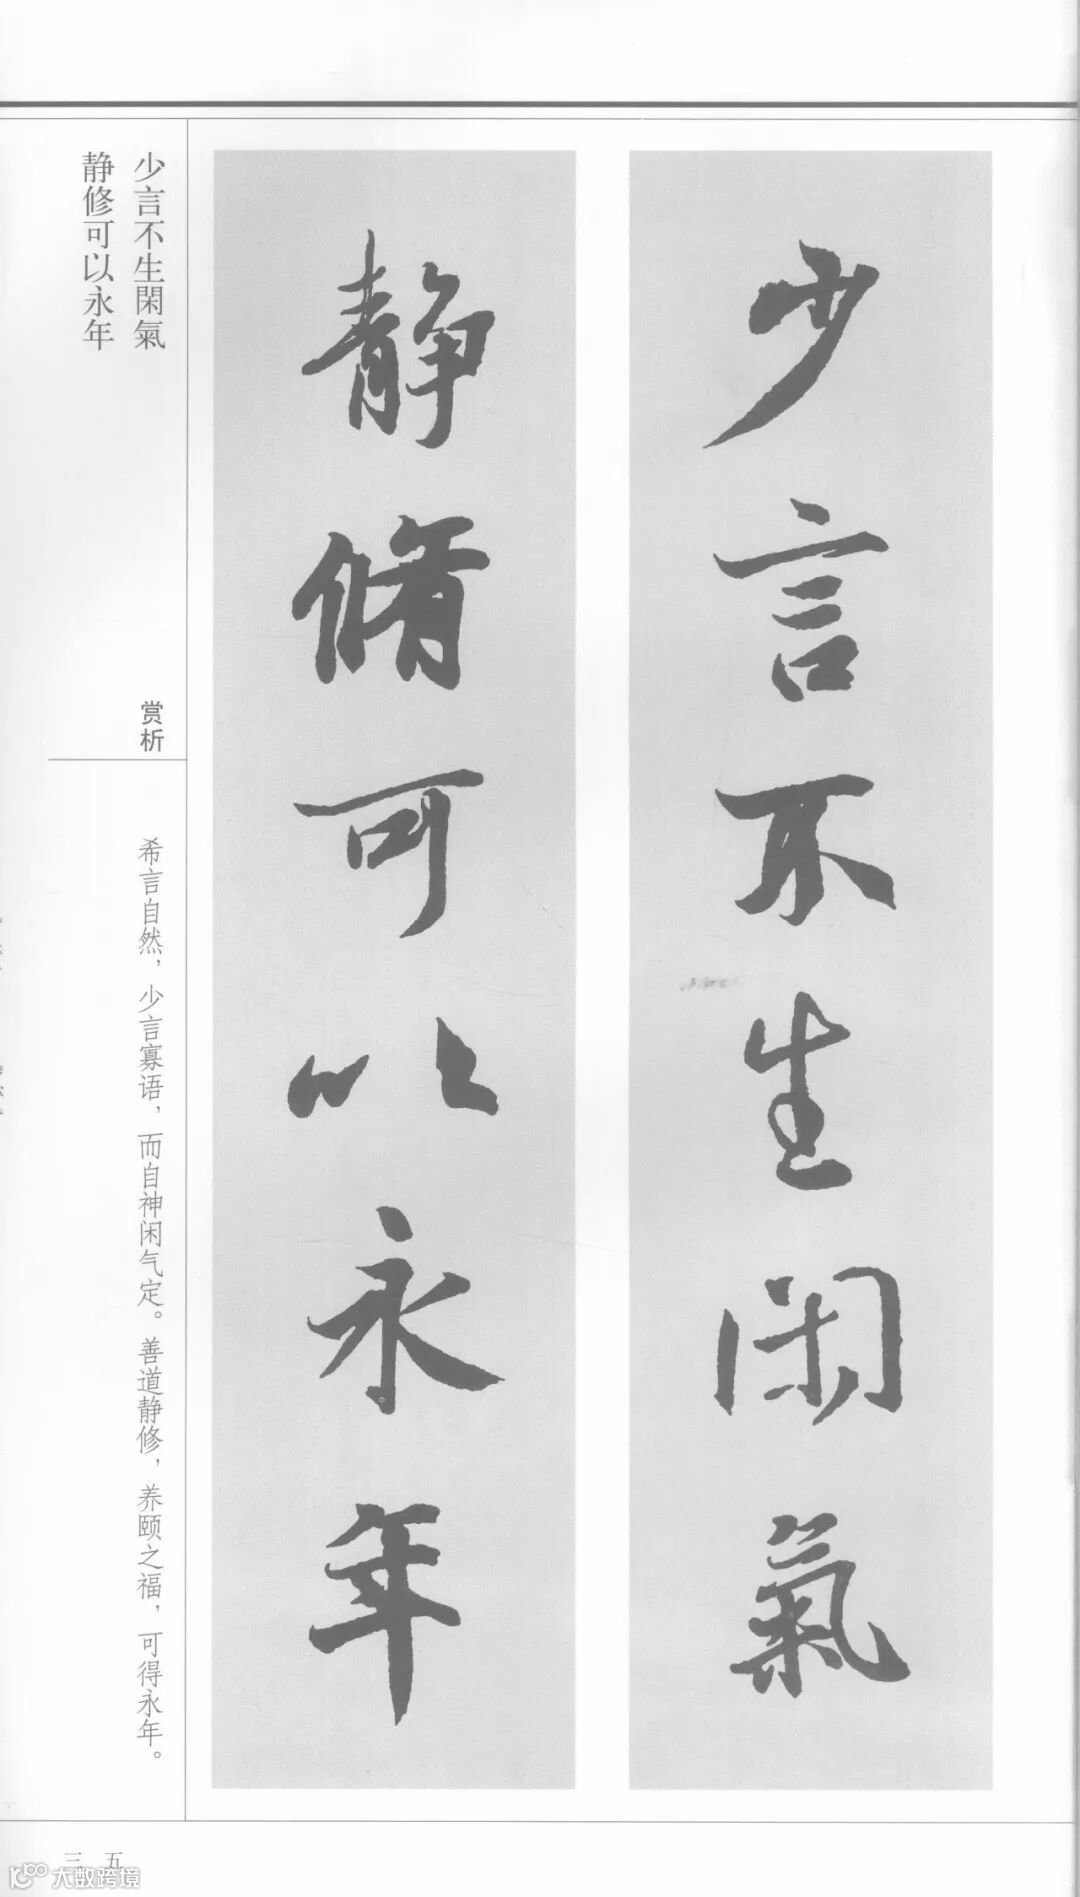 少言不生閑氣
静脩可以永年
少言不生閑氣
静修可以永年
赏析
希言自然，少言寡语，而自神闲气定。善道静修，养颐之福，可得永年。
三五
大数跨境